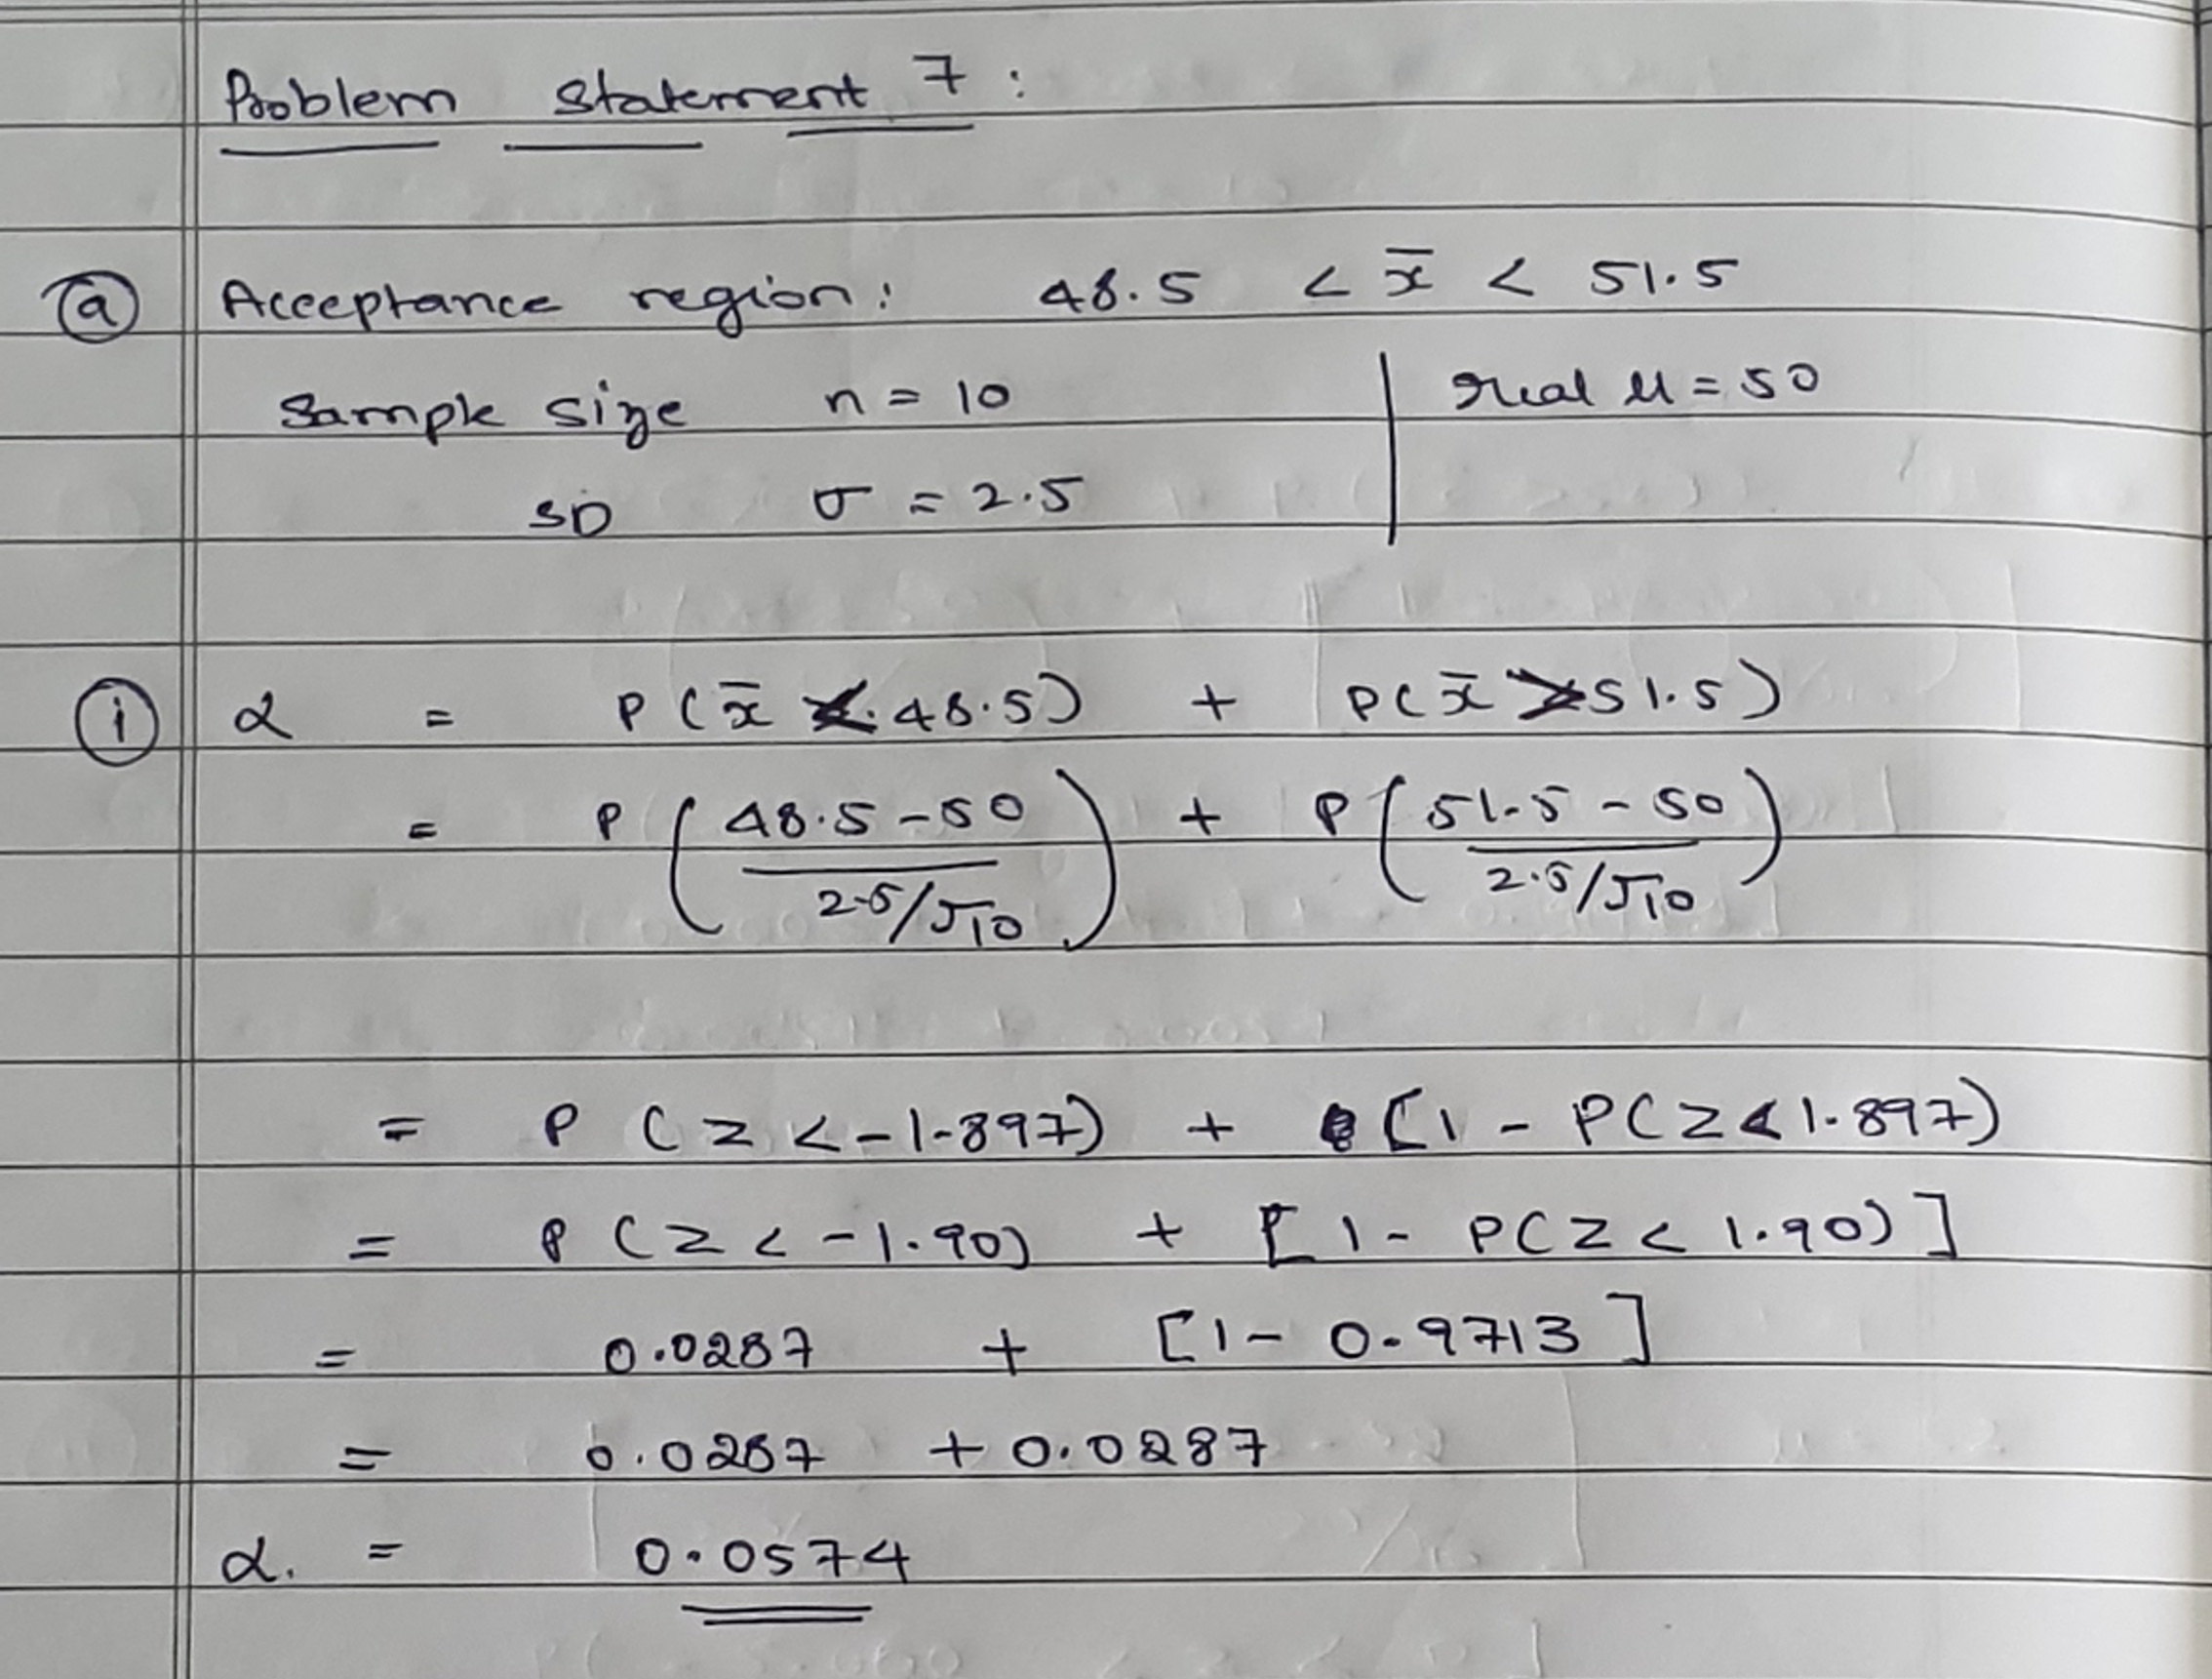 Problem Statement 7 :
(a) Acceptance region : 48.5 < x̄ < 51.5
Sample size n = 10 | real μ = 50
SD σ = 2.5
(i) α = P(x̄ < 48.5) + P(x̄ > 51.5)
= P((48.5 - 50)/(2.5/√10)) + P((51.5 - 50)/(2.5/√10))
= P(Z < -1.897) + [1 - P(Z < 1.897)
= P(Z < -1.90) + [1 - P(Z < 1.90)]
= 0.0287 + [1 - 0.9713]
= 0.0287 + 0.0287
α. = 0.0574